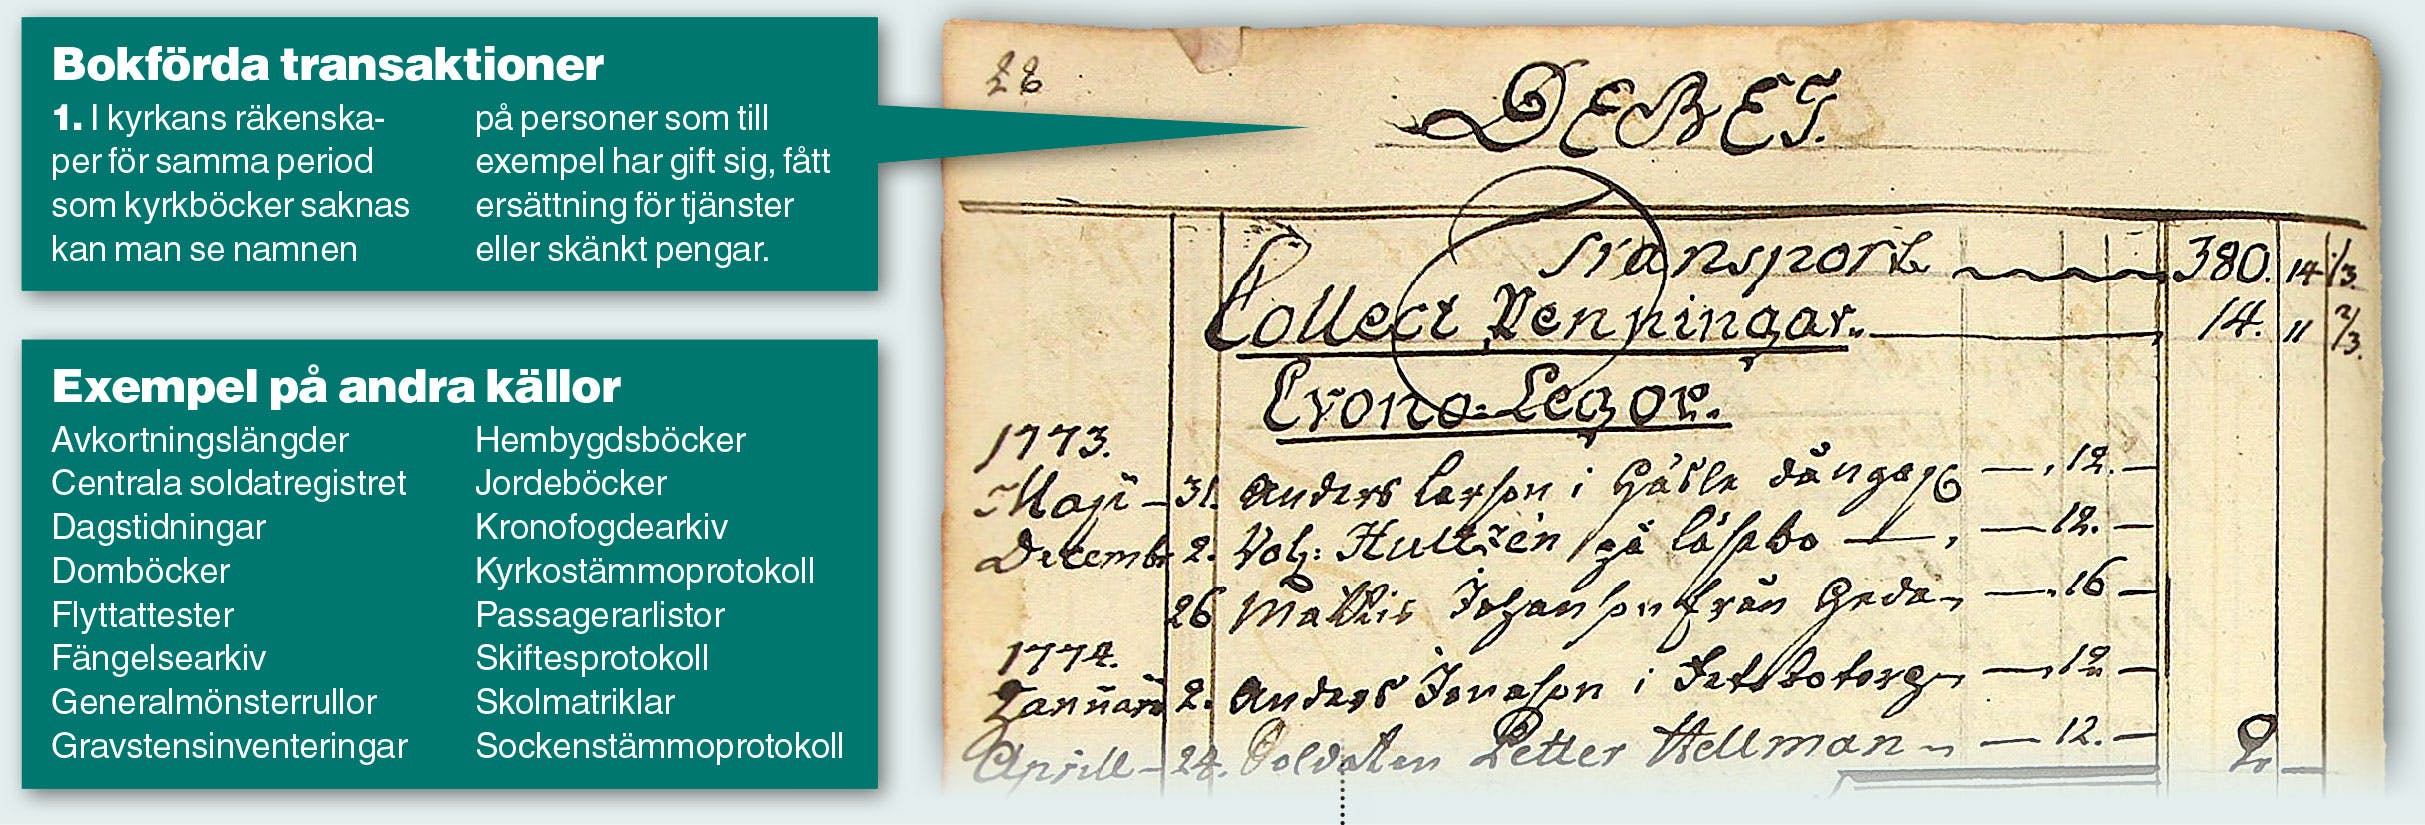 Bokförda transaktioner
1. I kyrkans räkenska-
per för samma period
som kyrkböcker saknas
kan man se namnen
på personer som till
exempel har gift sig, fått
ersättning för tjänster
eller skänkt pengar.
Exempel på andra källor
Avkortningslängder
Centrala soldatregistret
Dagstidningar
Domböcker
Flyttattester
Fängelsearkiv
Generalmönsterrullor
Gravstensinventeringar
Hembygdsböcker
Jordeböcker
Kronofogdearkiv
Kyrkostämmoprotokoll
Passagerarlistor
Skiftesprotokoll
Skolmatriklar
Sockenstämmoprotokoll
28
DEBET.
Transport 380. 14 1/3.
Collect Penningar. 14. 11 2/3.
1773.
Maji 31. Anders Larsson i 12.
Decemb. 2. Hultzén på 12.
26 Mattis Johansson från 16
1774.
Januarii 2. Anders Jonasson i 12
Aprill 24. Soldaten Petter Hellman 12. 2